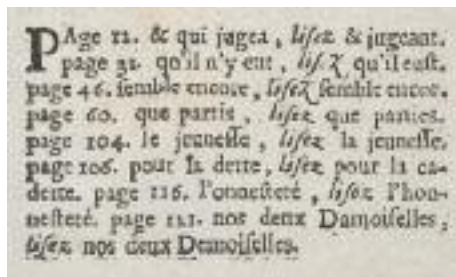 PAge 12. & qui jugea, lisez & jugeant.
page 32. qu'il n'y eut, lisez qu'il eust.
page 46. semble encore, lisez semble encor.
page 60. que partis, lisez que parties.
page 104. le jeunesse, lisez la jeunesse.
page 106. pour la dette, lisez pour la ca-
dette. page 116. l'onnesteté, lisez l'hon-
nesteté. page 121. nos deux Damoiselles,
lisez nos deux Demoiselles.